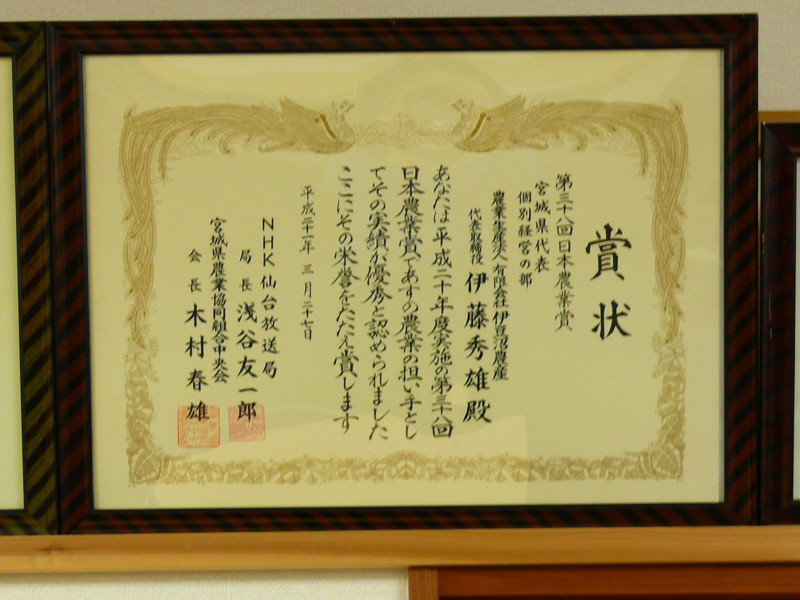 賞状
第三十八回日本農業賞
宮城県代表
個別経営の部
農業生産法人 有限会社 伊豆沼農産
代表取締役 伊藤秀雄 殿
あなたは平成二十年度実施の第三十八回
日本農業賞であすの農業の担い手とし
てその実績が優秀と認められました
ここにその栄誉をたたえ賞します
平成二十一年 三月二十七日
NHK仙台放送局
局長 浅谷友一郎
宮城県農業協同組合中央会
会長 木村春雄